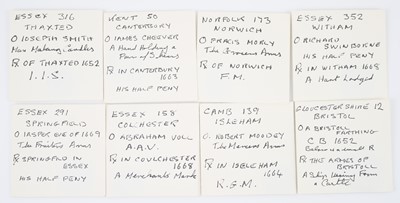 ESSEX 316
THAXTED
O IOSEPH SMITH
Man Making Candles
℞ OF THAXTED 1652
I.I.S.
KENT 50
CANTERBURY
O IAMES CHEEVER
A Hand Holding a
Pair of Shears
℞ IN CANTERBURY
1663
HIS HALF PENY
NORFOLK 173
NORWICH
O FRACIS MORLY
The Grocers Arms
℞ OF NORWICH
F.M.
ESSEX 352
WITHAM
O RICHARD
SWINBORNE
HIS HALF PENY
℞ IN WITHAM 1668
A Heart
ESSEX 291
SPRINGFIELD
O IASPER EVE OF 1669
The Fruiters Arms
℞ SPRINGFILD IN
ESSEX
HIS HALF PENY
ESSEX 158
COLCHESTER
O ABRAHAM VOLL
A.A.V.
℞ IN COULCHESTER
1668
A Merchants Mark
CAMB 139
ISLEHAM
O. ROBERT MOODEY
The Mercers Arms
℞ IN ISELEHAM
1664
R.G.M.
GLOUCESTERSHIRE 12
BRISTOL
O A BRISTOL
FARTHING
C B 1652
Below a small R
℞ THE ARMES OF
BRISTOLL
A Ship Leaving From
a Castle